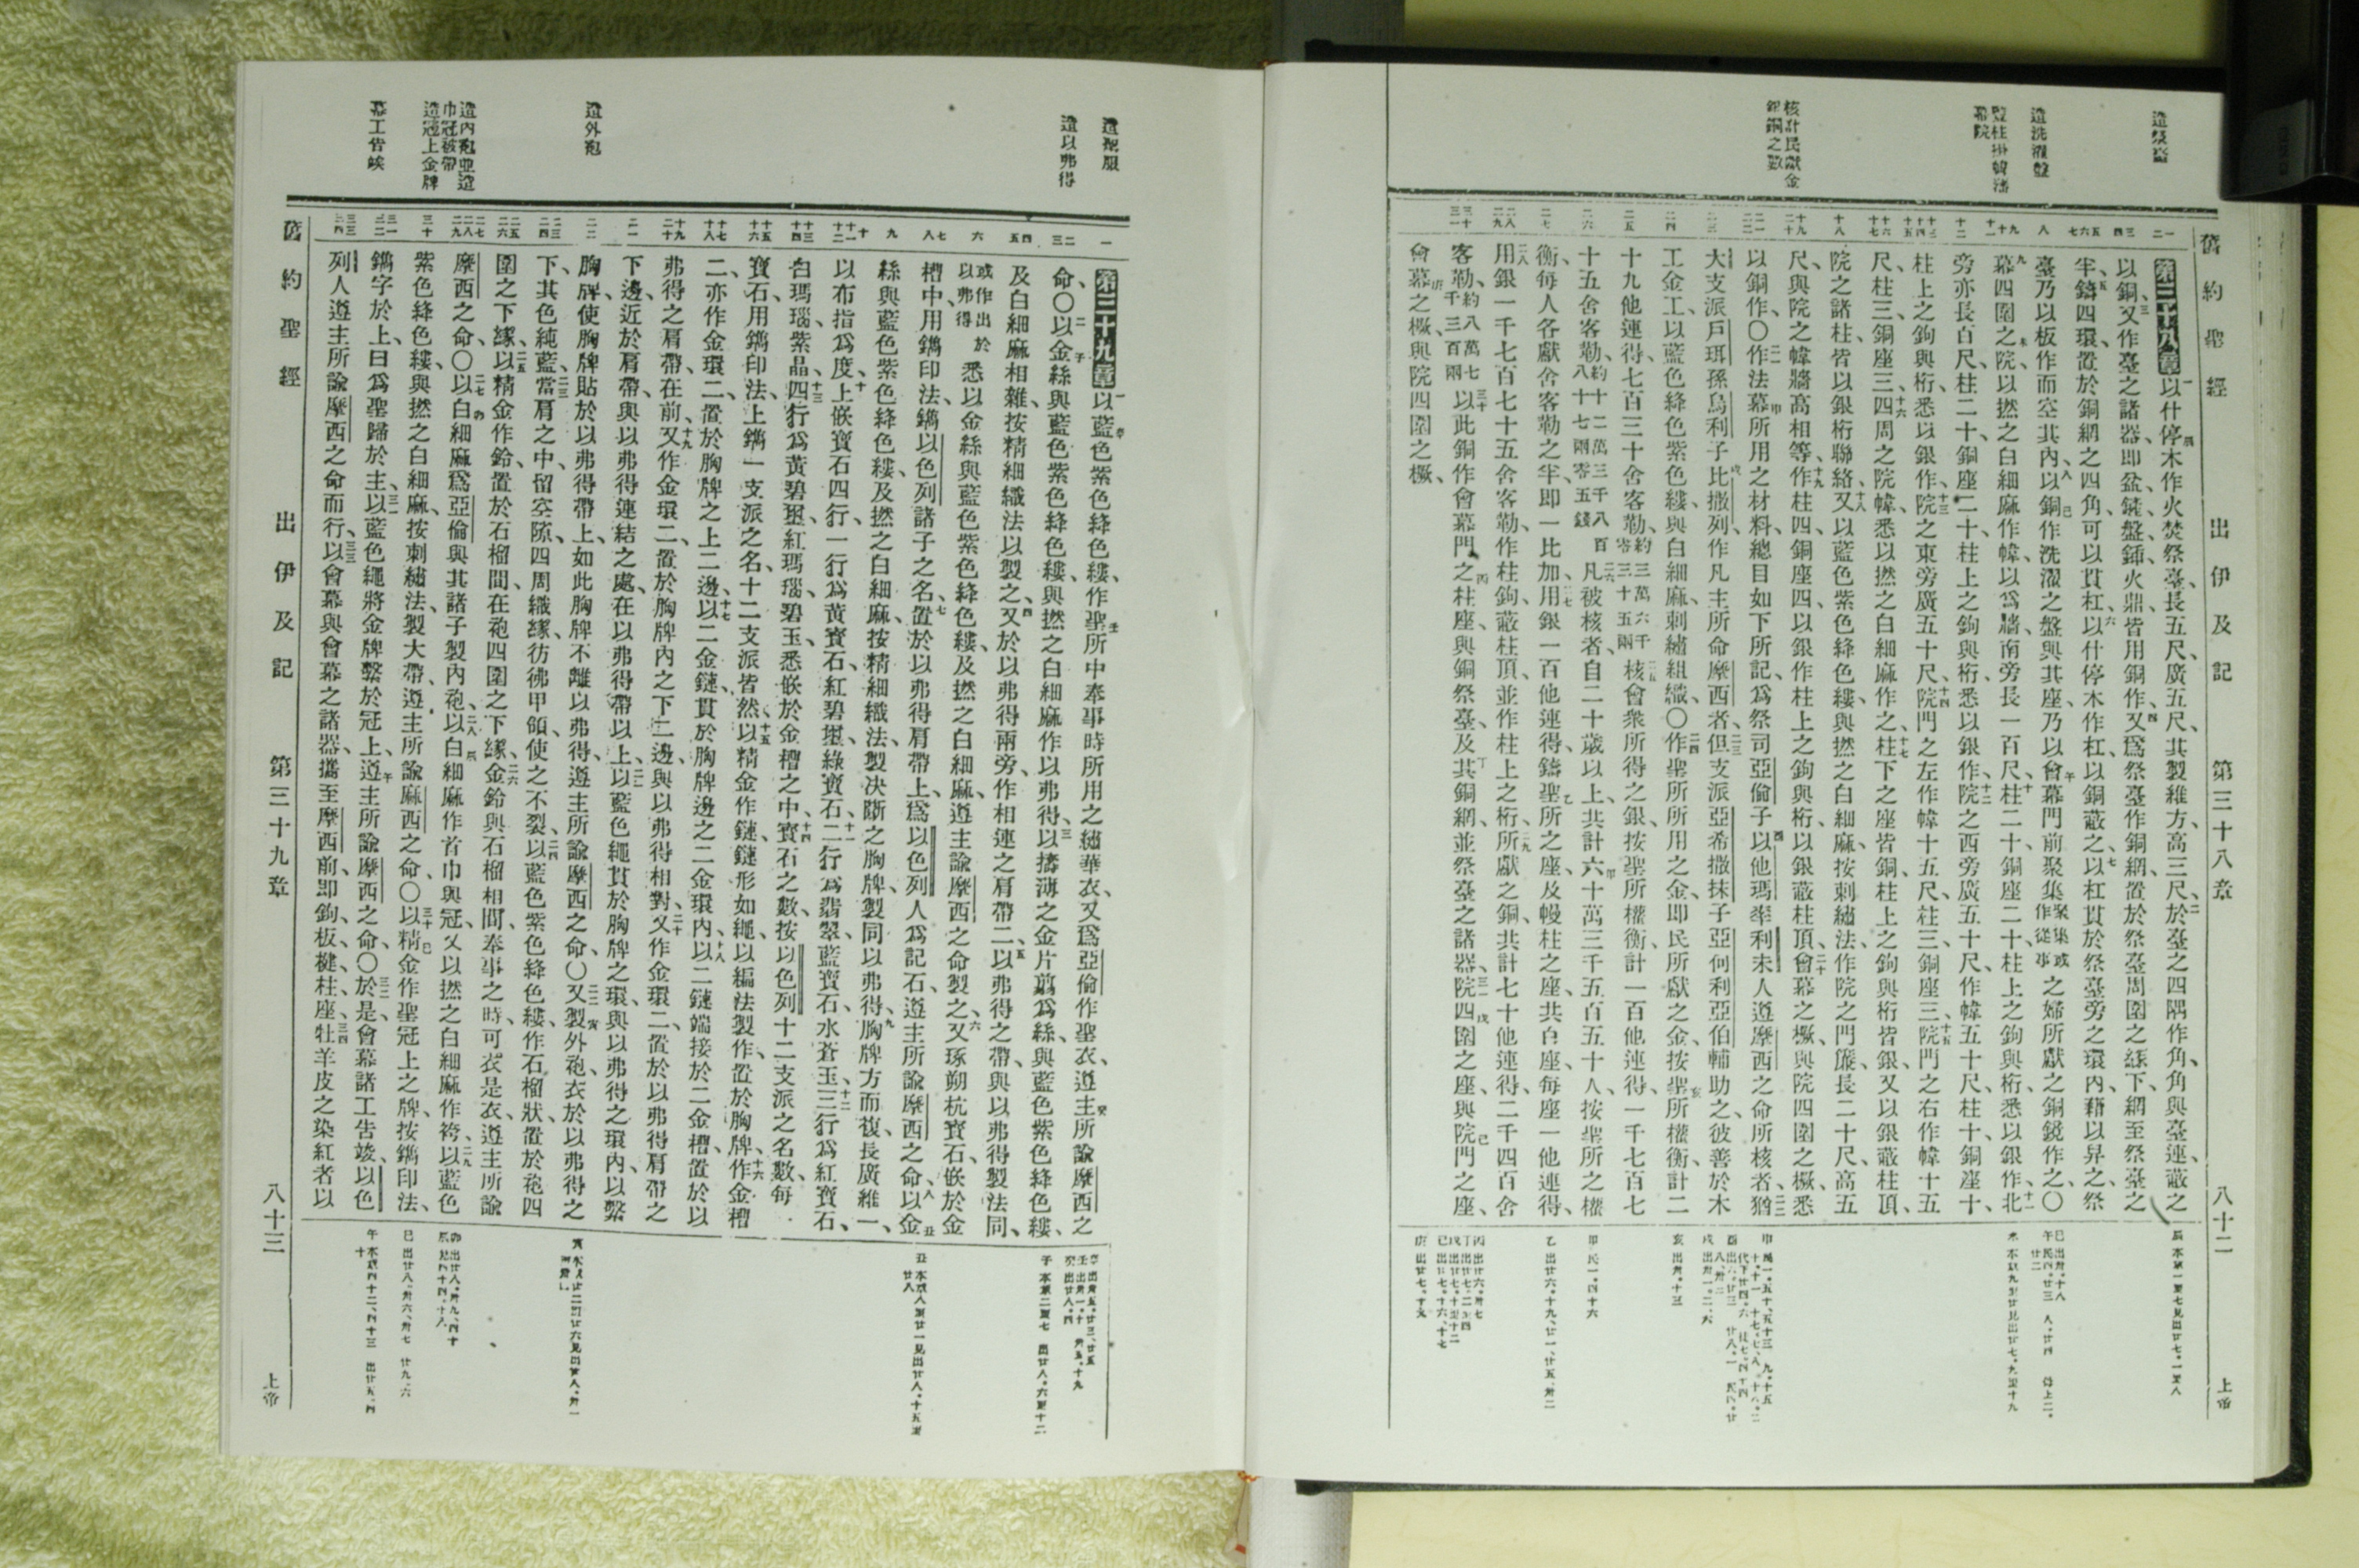 舊約聖經 出伊及記 第三十八章 八十二 上帝
造祭臺
造洗濯盤
豎柱掛幃為
幕院
核計民獻金
銀銅之數
第三十八章 以什停木作火焚祭臺、長五尺、廣五尺、其製維方、高三尺、於臺之四隅作角、角與臺連、蔽之
以銅、又作臺之諸器、即盆、鏟、盤、鍤、火鼎、皆用銅作、又爲祭臺作銅網、置於祭臺周圍之緣下、網至祭臺之
半、鑄四環、置於銅網之四角、可以貫杠、以什停木作杠、以銅蔽之、以杠貫於祭臺旁之環內、藉以舁之、祭
臺乃以板作而空其內、以銅作洗濯之盤與其座、乃以會幕門前聚集聚集或作從事之婦所獻之銅鏡作之、〇
幕四圍之院、以撚之白細麻作幃、以爲牆、南旁長一百尺、柱二十、銅座二十、柱上之鉤與桁、悉以銀作、北
旁亦長百尺、柱二十、銅座二十、柱上之鉤與桁、悉以銀作、院之西旁廣五十尺、作幃五十尺、柱十、銅座十、
柱上之鉤與桁、悉以銀作、院之東旁廣五十尺、院門之左作幃十五尺、柱三、銅座三、院門之右作幃十五
尺、柱三、銅座三、四周之院幃、悉以撚之白細麻作之、柱下之座皆銅、柱上之鉤與桁皆銀、又以銀蔽柱頂、
院之諸柱、皆以銀桁聯絡、又以藍色紫色絳色縷、與撚之白細麻、按刺繡法、作院之門簾、長二十尺、高五
尺、與院之幃牆高相等、作柱四、銅座四、以銀作柱上之鉤與桁、以銀蔽柱頂、會幕之橛、與院四圍之橛、悉
以銅作、〇作法幕所用之材料、總目如下所記、爲祭司亞倫子以他瑪率利未人遵摩西之命所核者、猶
大支派戶珥孫烏利子比撒列、作凡主所命摩西者、但支派亞希撒抹子亞何利亞伯輔助之、彼善於木
工金工、以藍色絳色紫色縷、與白細麻、刺繡組織、〇作聖所所用之金、即民所獻之金、按聖所權衡計二
十九他連得、七百三十舍客勒、約三萬六千零三十五兩核會衆所得之銀、按聖所權衡計一百他連得、一千七百七
十五舍客勒、約十二萬三千八百八十七兩零五錢凡被核者、自二十歲以上、共計六十萬三千五百五十人、按聖所之權
衡、每人各獻舍客勒之半、即一比加、用銀一百他連得、鑄聖所之座、及幔柱之座、共百座、每座一他連得、
用銀一千七百七十五舍客勒、作柱鉤、蔽柱頂、並作柱上之桁、所獻之銅、共計七十他連得、二千四百舍
客勒、約八萬七千三百兩以此銅作會幕門之柱座、與銅祭臺、及其銅網、並祭臺之諸器、院四圍之座、與院門之座、
會幕之橛、與院四圍之橛、
造聖服
造以弗得
造外袍
造內袍並造
巾冠裤帶
造冠上金牌
幕工告竣
第三十九章 以藍色紫色絳色縷、作聖所中奉事時所用之繡華衣、又爲亞倫作聖衣、遵主所諭摩西之
命、〇以金絲與藍色紫色絳色縷、與撚之白細麻作以弗得、以擣薄之金片剪爲絲、與藍色紫色絳色縷、
及白細麻相雜、按精細織法以製之、又於以弗得兩旁、作相連之肩帶二、以弗得之帶、與以弗得製法同、
或作出於以弗得悉以金絲與藍色紫色絳色縷、及撚之白細麻、遵主諭摩西之命製之、又琢朔杭寶石、嵌於金
槽中、用鐫印法、鐫以色列諸子之名、置於以弗得肩帶上、爲以色列人爲記石、遵主所諭摩西之命、以金
絲與藍色紫色絳色縷、及撚之白細麻、按精細織法、製决斷之胸牌、製同以弗得、胸牌方而複、長廣維一、
以布指爲度、上嵌寶石四行、一行爲黃寶石、紅碧璽、綠寶石、二行爲翡翠、藍寶石、水蒼玉、三行爲紅寶石、
白瑪瑙、紫晶、四行爲黃碧璽、紅瑪瑙、碧玉、悉嵌於金槽之中、寶石之數、按以色列十二支派之名數、每
寶石、用鐫印法、上鐫一支派之名、十二支派皆然、以精金作鏈、鏈形如繩、以編法製作、置於胸牌、作金槽
二、亦作金環二、置於胸牌之上二邊、以二金鏈、貫於胸牌邊之二金環內、以二鏈端接於二金槽、置於以
弗得之肩帶、在前、又作金環二、置於胸牌內之下二邊、與以弗得相對、又作金環二、置於以弗得肩帶之
下邊、近於肩帶、與以弗得連結之處、在以弗得帶以上、以藍色繩貫於胸牌之環、與以弗得之環內、以繫
胸牌、使胸牌貼於以弗得帶上、如此胸牌不離以弗得、遵主所諭摩西之命、〇又製外袍、衣於以弗得之
下、其色純藍、當肩之中、留空隙、四周織緣、彷彿甲領、使之不裂、以藍色紫色絳色縷、作石榴狀、置於袍四
圍之下緣、以精金作鈴、置於石榴間、在袍四圍之下緣、金鈴與石榴相間、奉事之時、可衣是衣、遵主所諭
摩西之命、〇以白細麻爲亞倫與其諸子製內袍、以白細麻作首巾與冠、又以撚之白細麻作袴、以藍色
紫色絳色縷、與撚之白細麻、按刺繡法、製大帶、遵主所諭摩西之命、〇以精金作聖冠上之牌、按鐫印法、
鐫字於上、曰爲聖歸於主、以藍色繩將金牌繫於冠上、遵主所諭摩西之命、〇於是會幕諸工告竣、以色
列人遵主所諭摩西之命而行、以會幕與會幕之諸器、攜至摩西前、即鉤、板、楗、柱、座、牡羊皮之染紅者、以
舊約聖經 出伊及記 第三十九章 八十三 上帝